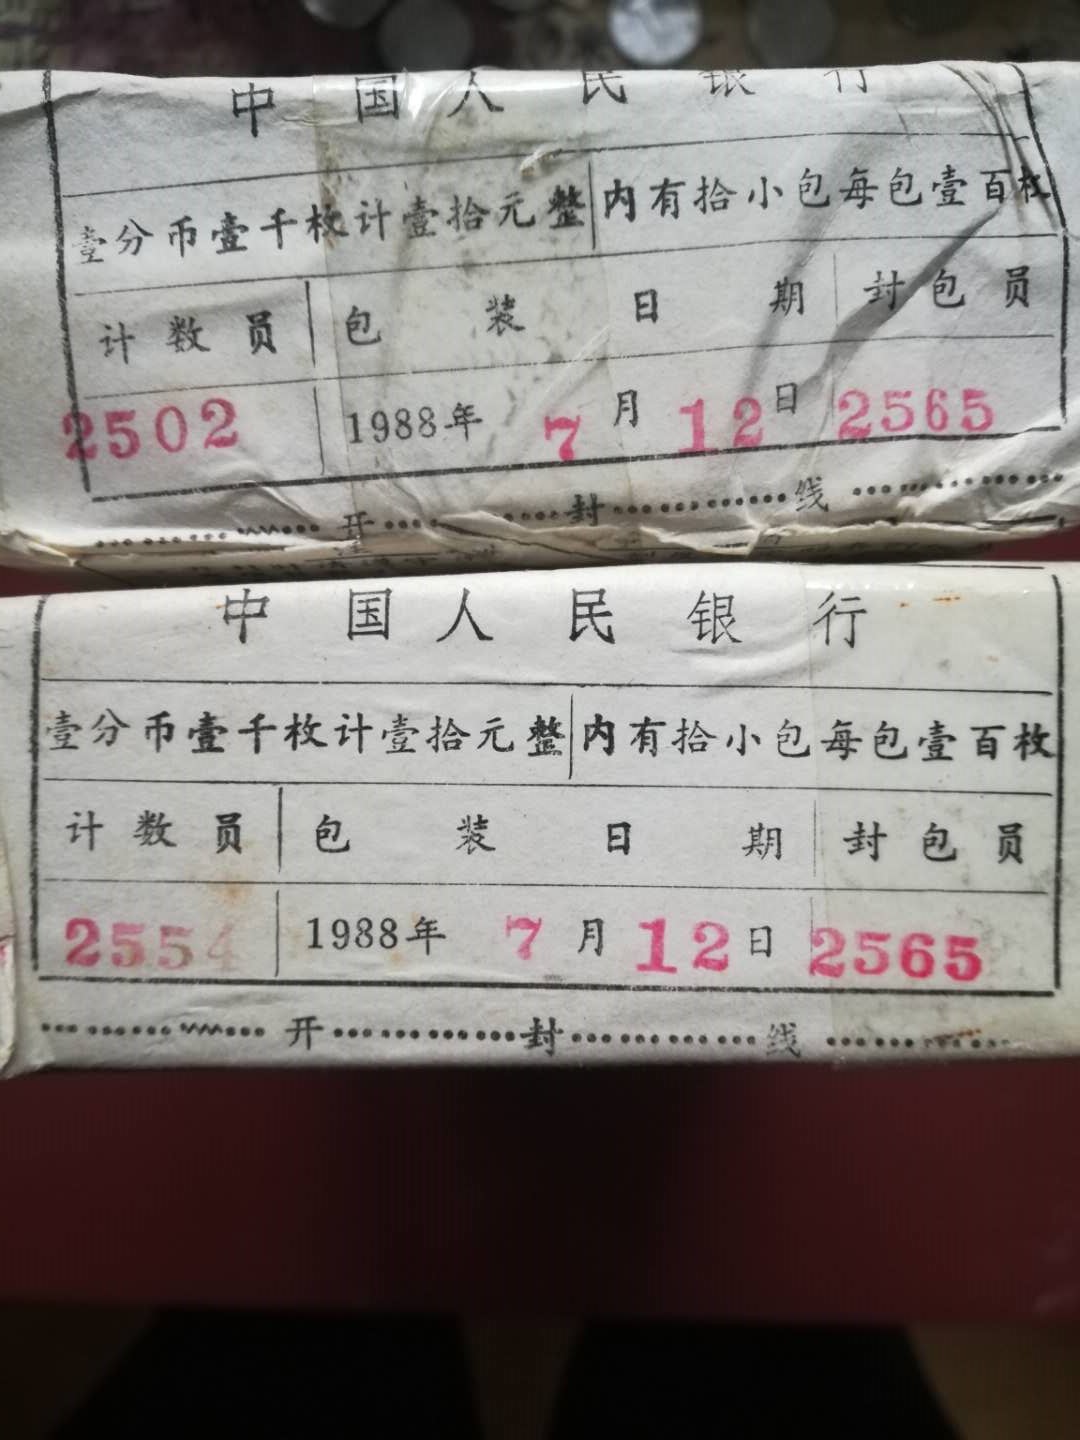 中国人民银行
壹分币壹千枚计壹拾元整 内有拾小包每包壹百枚
计数员 包装日期 封包员
2502 1988年7月12日 2565
开封线
中国人民银行
壹分币壹千枚计壹拾元整 内有拾小包每包壹百枚
计数员 包装日期 封包员
2554 1988年7月12日 2565
开封线